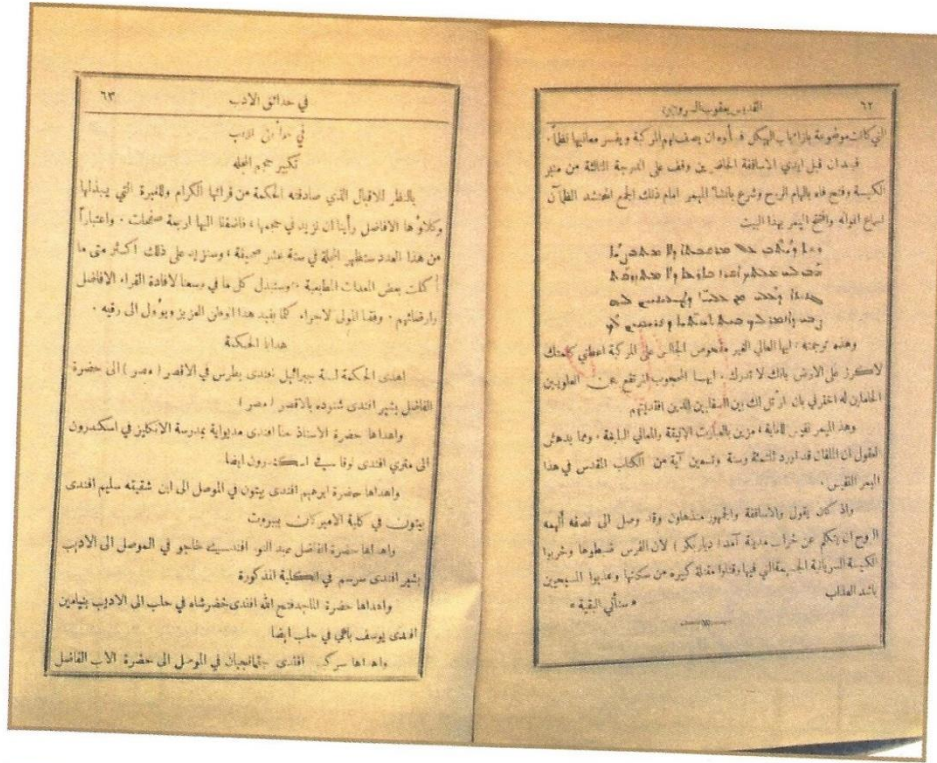 ٦٢ القديس يعقوب السروجي
التي كانت موضوعة بازاء باب الهيكل فـ أوه ان يصف لهم المركبة ويفسر معانيها لفظاً ٠
فبعد ان قبل ايدي الاساقفة الحاضرين وقف على الدرجة الثالثة من منبر
الكنيسة وفتح فاه بالهام الروح وشرع بانشاء الميمر امام ذلك الجمع المحتشد الظمآن
لسماع اقواله وافتتح الميمر بهذا البيت
وهذه ترجمته ٠ ايها العالي الغير مفحوص الجالس على المركبة اعطني كلمتك
لاكرز على الارض بانك لا تدرك ٠ ايها المحجوب المرتفع عن العلويين
الحاملين له اخفر لي بان ارتل لك بين السفليين الذين افتديتهم
وهذا الميمر نفيس للغاية ، مزين بالعبارات الانيقة والمعاني البليغة ٠ ومما يدهش
العقول ان الملفان قد اورد ثلثمئة وستة وتسعين آية من الكتاب المقدس في هذا
الميمر النفيس ٠
واذ كان يقول والاساقفة والجمهور منذهلون وقد وصل الى نصفه ألهمه
الروح ان يتكلم عن خراب مدينة آمد ( ديار بكر ) لان الفرس ضبطوها وخربوا
الكنيسة السريانية التي فيها وقتلوا مقتلة كبيرة من سكانها وعذبوا المسيحيين
باشد العذاب
« ستأتي البقية »
في حدائق الادب ٦٣
في حدائق الادب
تكبير حجم المجله
بالنظر للاقبال الذي صادفته الحكمة من قرائها الكرام وللغيرة التي يبذلها
وكلاؤها الافاضل رأينا ان نزيد في حجمها ، فاضفنا اليها اربعة صفحات ٠ واعتباراً
من هذا العدد ستظهر المجلة في ستة عشر صحيفة ، وسنزيد على ذلك اكثر متى ما
أكملت بعض المعدات المطبعية ٠ وسنبذل كل ما في وسعنا لافادة القراء الافاضل
وارضائهم ٠ وفقنا المولى لاجراء كلما يفيد هذا الوطن العزيز ويؤول الى رقيه ٠
هدايا الحكمة
اهدى الحكمة لسنة جبرائيل افندى بطرس في الاقصر ( مصر ) الى حضرة
الفاضل بشير افندى شنوده بالاقصر ( مصر )
واهداها حضرة الاستاذ حنا افندى مديواية بمدرسة الانكليز في اسكندرون
الى متري افندى لوقا في اسكندرون ايضا
واهداها حضرة ابرهيم افندى بيثون في الموصل الى ابن شقيقه سليم افندى
بيثون في كلية الاميركان ببيروت
واهداها حضرة الفاضل عبد النور افندي خاجو في الموصل الى الاديب
بشير افندى سرسم في الكلية المذكورة
واهداها حضرة الماجد فتح الله افندى خضرشاه في حلب الى الاديب بنيامين
افندى يوسف باهي في حلب ايضا
واهداها سركيس افندى جثانجيان في الموصل الى حضرة الاب الفاضل